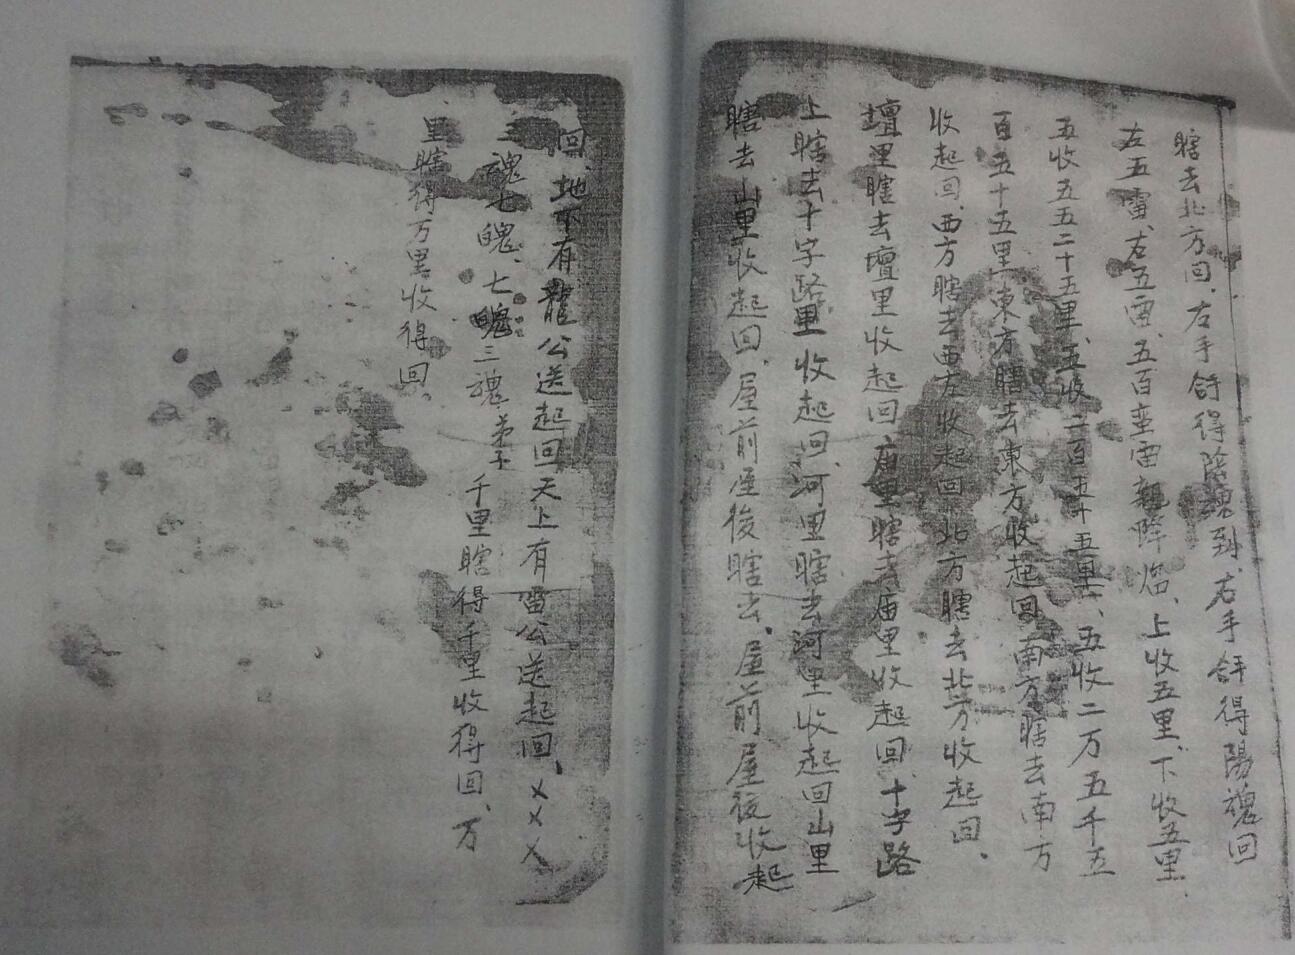 瞎去北方回、右手舒得陰魂到、右手舒得陽魂回
左五雷、右五雷、五百蛮雷親降臨、上收五里、下收五里、
五收五五二十五里、五收二百五十五里、五收二万五千五
百五十五里、東方瞎去東方收起回、南方瞎去南方
收起回、西方瞎去西方收起回北方瞎去北方收起回、
壇里瞎去壇里收起回廟里瞎去庙里收起回、十字路
上瞎去十字路里收起回、河里瞎去河里收起回山里
瞎去山里收起回、屋前屋後瞎去、屋前屋後收起
回、地下有龍公送起回天上有雷公送起回、乂乂乂
三魂七魄、七魄三魂、弟子千里瞎得千里收得回、万
里瞎得万里收得回、